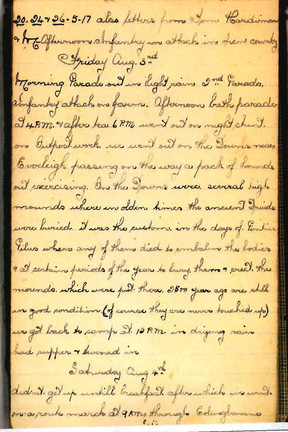 20, 24 & 26-5-17 also letters from Tom Hardiman
Afternoon Infantry in attack in open country
Friday Aug 3rd
Morning Parade out in light rain 2nd Parade,
Infantry attack on farm. Afternoon bath parade
at 4 P.M. & after tea 6 PM went out on night stunt,
on Outpost work we went out on the Downs near
Everleigh passing on the way a pack of hounds
out exercising. On the Downs were several high
mounds where in olden times the ancient Druids
were buried it was the custom in the days of Pontius
Pilus when any of them died to embalm the bodies
& at certain periods of the year to bury them & erect the
mounds which were put there 2500 year ago are still
in good condition (of course they are never touched up)
we got back to camp at 12 PM in driving rain
had supper & turned in
Saturday Aug 4th
didnt get up untill breakfast after which we went
on a route march at 9 AM through Colingbourne